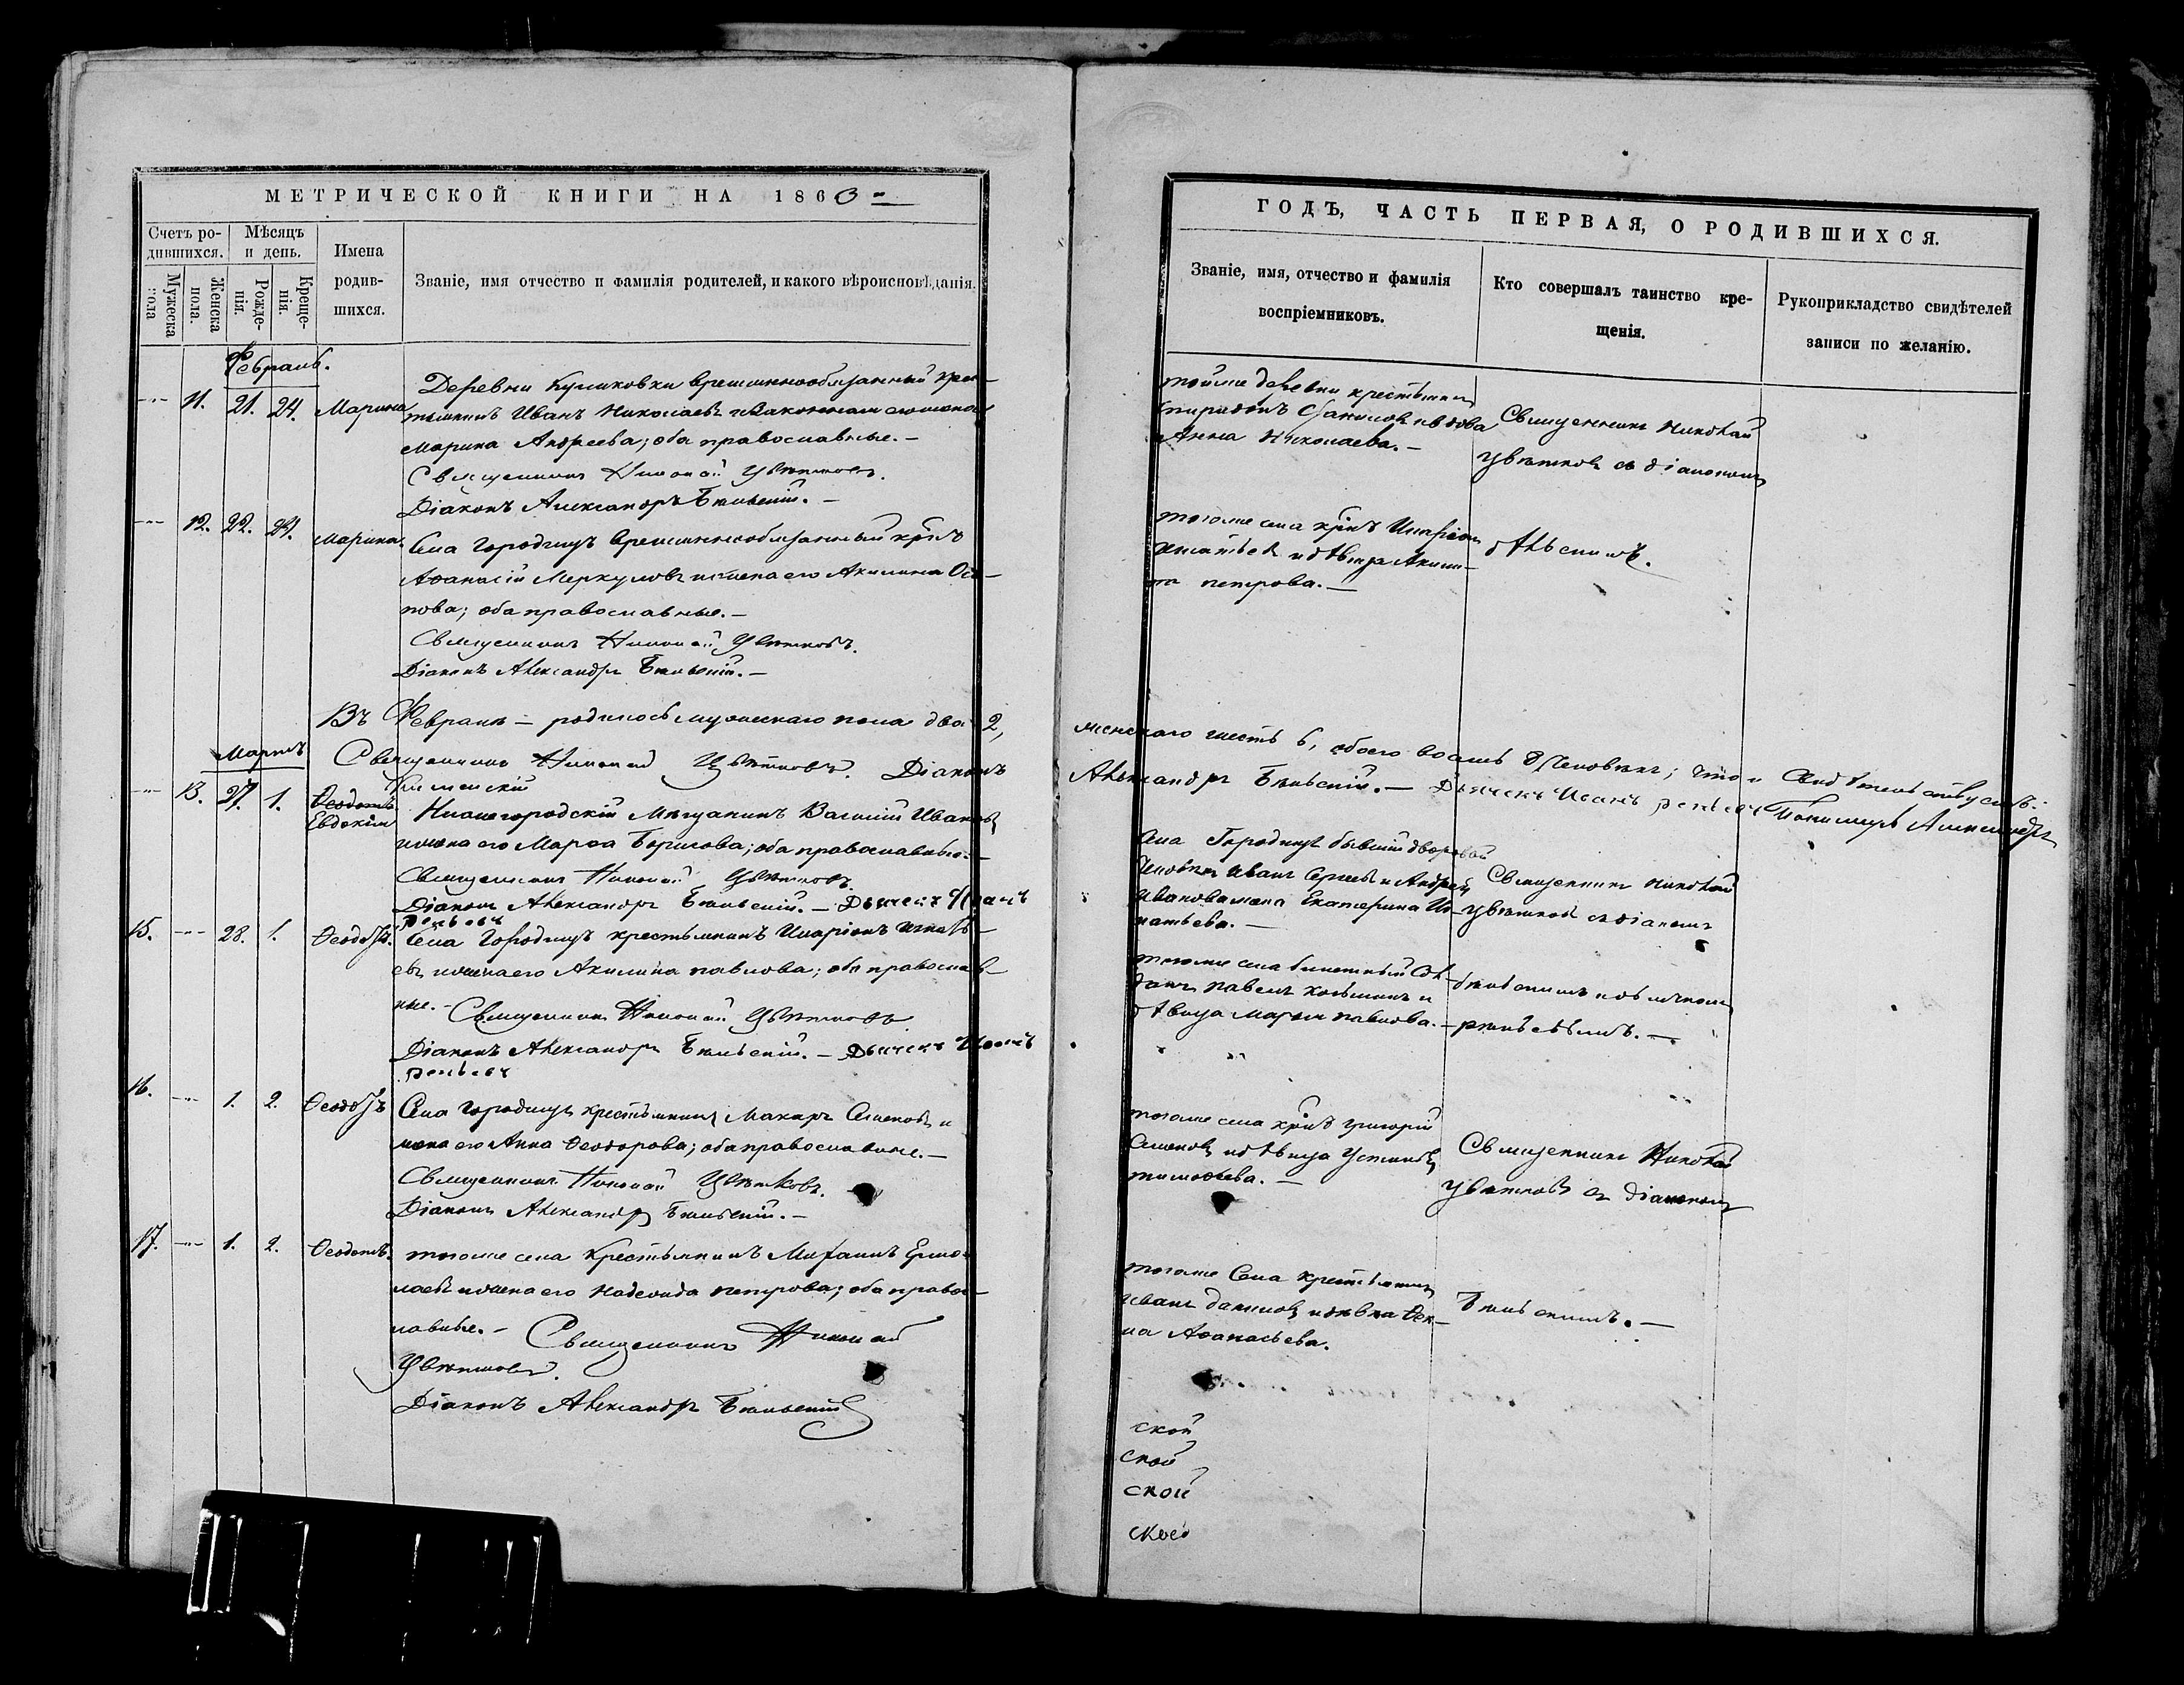 МЕТРИЧЕСКОЙ КНИГИ НА 1863
Счетъ ро-
дившихся.
Мужеска
пола
Женска
пола.
Мѣсяцъ
и день.
Рожде-
нія.
Креще-
нія.
Имена
родив-
шихся.
Званіе, имя отчество и фамилія родителей, и какого вѣроисповѣданія.
Февраль.
11. 21. 24. Марина
Деревни Куликовки временнообязанный крес-
тьянинъ Иванъ Николаевъ и законная жена его
Марина Андреева; оба православные.-
Священникъ Николай Цвѣтковъ.
Діаконъ Александръ Бѣльскій.-
12. 22. 24. Марина.
Села Городищъ временнообязанный крінъ
Аѳанасій Меркуловъ и жена его Акилина Оси-
пова; оба православные.-
Священникъ Николай Цвѣтковъ.
Діаконъ Александръ Бѣльскій.-
Въ Февралѣ - родилось мужескаго пола два 2,
Священникъ Николай Цвѣтковъ. Діаконъ
Мартъ
13. 27. 1. Ѳеодотъ
Евдокія
Нижегородскій Мѣщанинъ Василій Ивановъ
и жена его Марѳа Борисова; оба православные.-
Священникъ Николай Цвѣтковъ.
Діаконъ Александръ Бѣльскій.- Дьячекъ Иванъ
15. 28. 1. Ѳеодоръ.
Села Городищъ крестьянинъ Иларіонъ Игнать-
евъ и жена его Акилина Павлова; оба православ-
ные.- Священникъ Николай Цвѣтковъ
Діаконъ Александръ Бѣльскій.- Дьячекъ Иванъ
16. 1. 2. Ѳеодоръ
Села Городищъ крестьянинъ Макаръ Семеновъ и
жена его Анна Ѳеодорова; оба православные.-
Священникъ Николай Цвѣтковъ.
Діаконъ Александръ Бѣльскій.-
17. 1. 2. Ѳеодотъ.
тогоже села Крестьянинъ Михаилъ Ермо-
лаевъ и жена его Надежда Петрова; оба право-
лавные.- Священникъ Николай
Цвѣтковъ.
Діаконъ Александръ Бѣльскій
ГОДЪ, ЧАСТЬ ПЕРВАЯ, О РОДИВШИХСЯ.
Званіе, имя, отчество и фамилія
воспріемниковъ.
Кто совершалъ таинство кре-
щенія.
Рукоприкладство свидѣтелей
записи по желанію.
тойже деревни крестьянинъ
Спиридонъ и вдова
Анна Николаева.-
Священникъ Николай
Цвѣтковъ съ діакономъ
тогоже села крінъ Иларіонъ
Игнатьевъ и дѣвица Акили-
на Петрова.-
Бѣльскимъ.
женскаго шесть 6, обоего восемь 8 человѣкъ; что и свидѣтельствуемъ:
Александръ Бѣльскій.- Дьячекъ Иванъ Пономарь Александръ
села Городищъ бывшій дворовой
человѣкъ Иванъ Сергеевъ и Андрея
Иванова жена Екатерина Иг-
натьева.-
Священникъ Николай
Цвѣтковъ съ діакономъ
тогоже села билетный Сол-
датъ Павелъ Козьминъ и
дѣвица Марья Павлова.-
Бѣльскимъ и дьячкомъ
тогоже села крінъ Григорій
Семеновъ и дѣвица Устинья
Тимоѳеева.-
Священникъ Николай
Цвѣтковъ съ діакономъ
тогоже села крестьянинъ
Иванъ Даниловъ и дѣвка Ѳек-
ла Аѳанасьева.
Бѣльскимъ.-
ской
ской
ской